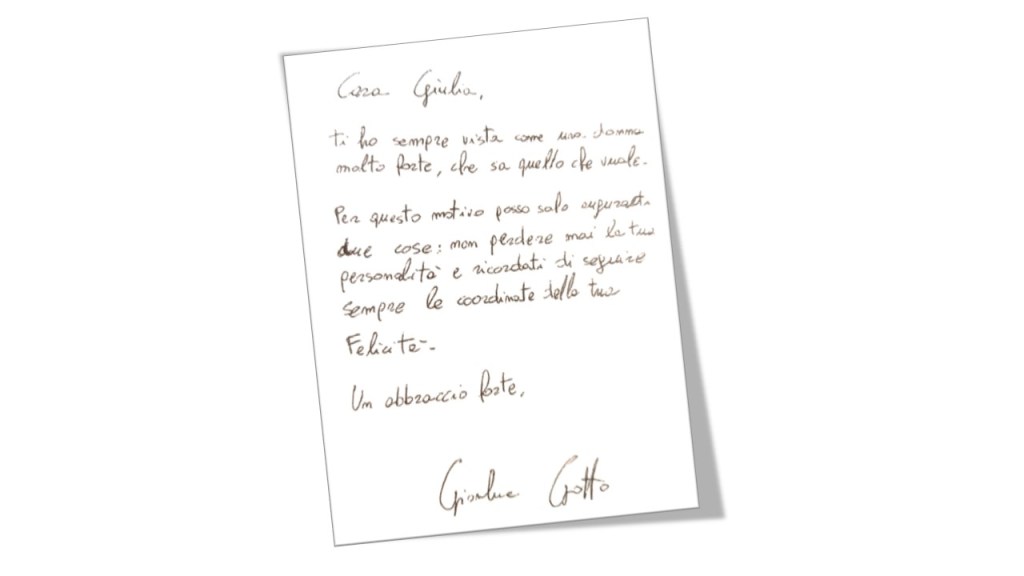 Cara Giulia,
ti ho sempre vista come una donna
molto forte, che sa quello che vuole.
Per questo motivo posso solo augurarti
due cose: non perdere mai la tua
personalità e ricordati di seguire
sempre le coordinate della tua
Felicità.
Un abbraccio forte,
Gianluca Gotto